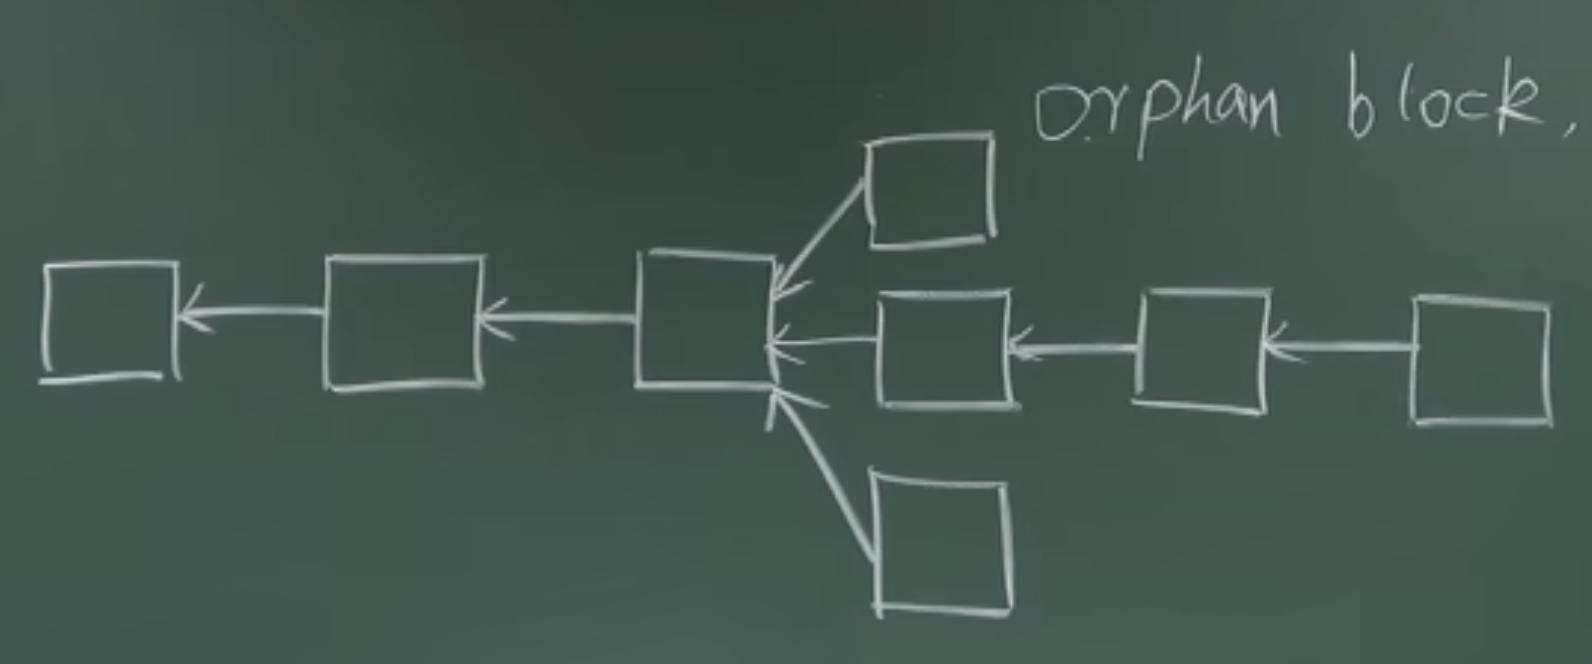 orphan block,